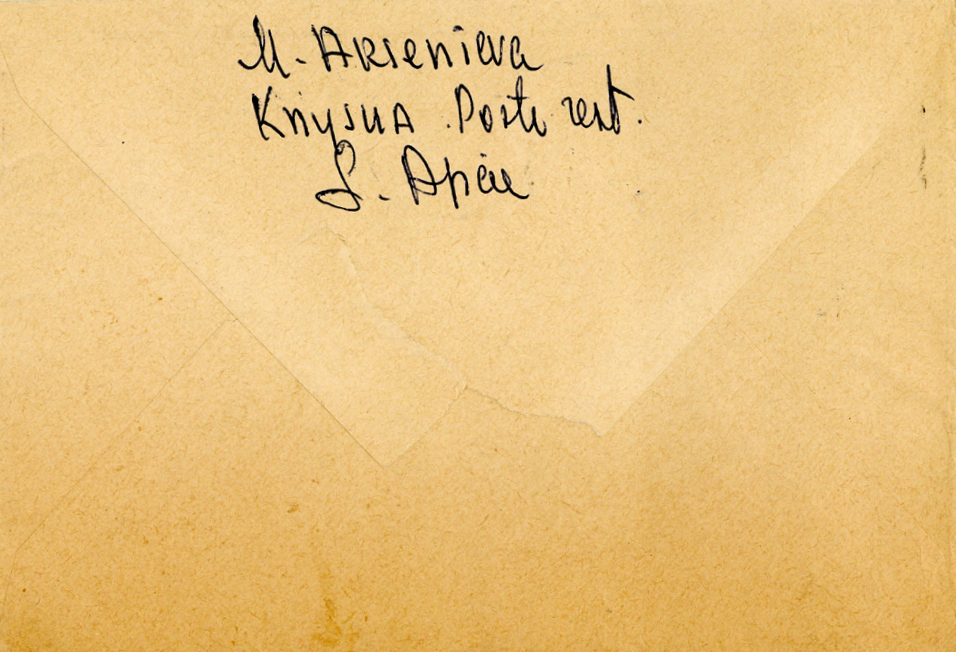 M. Arsenieva
Knysna Poste rest.
S. Africe